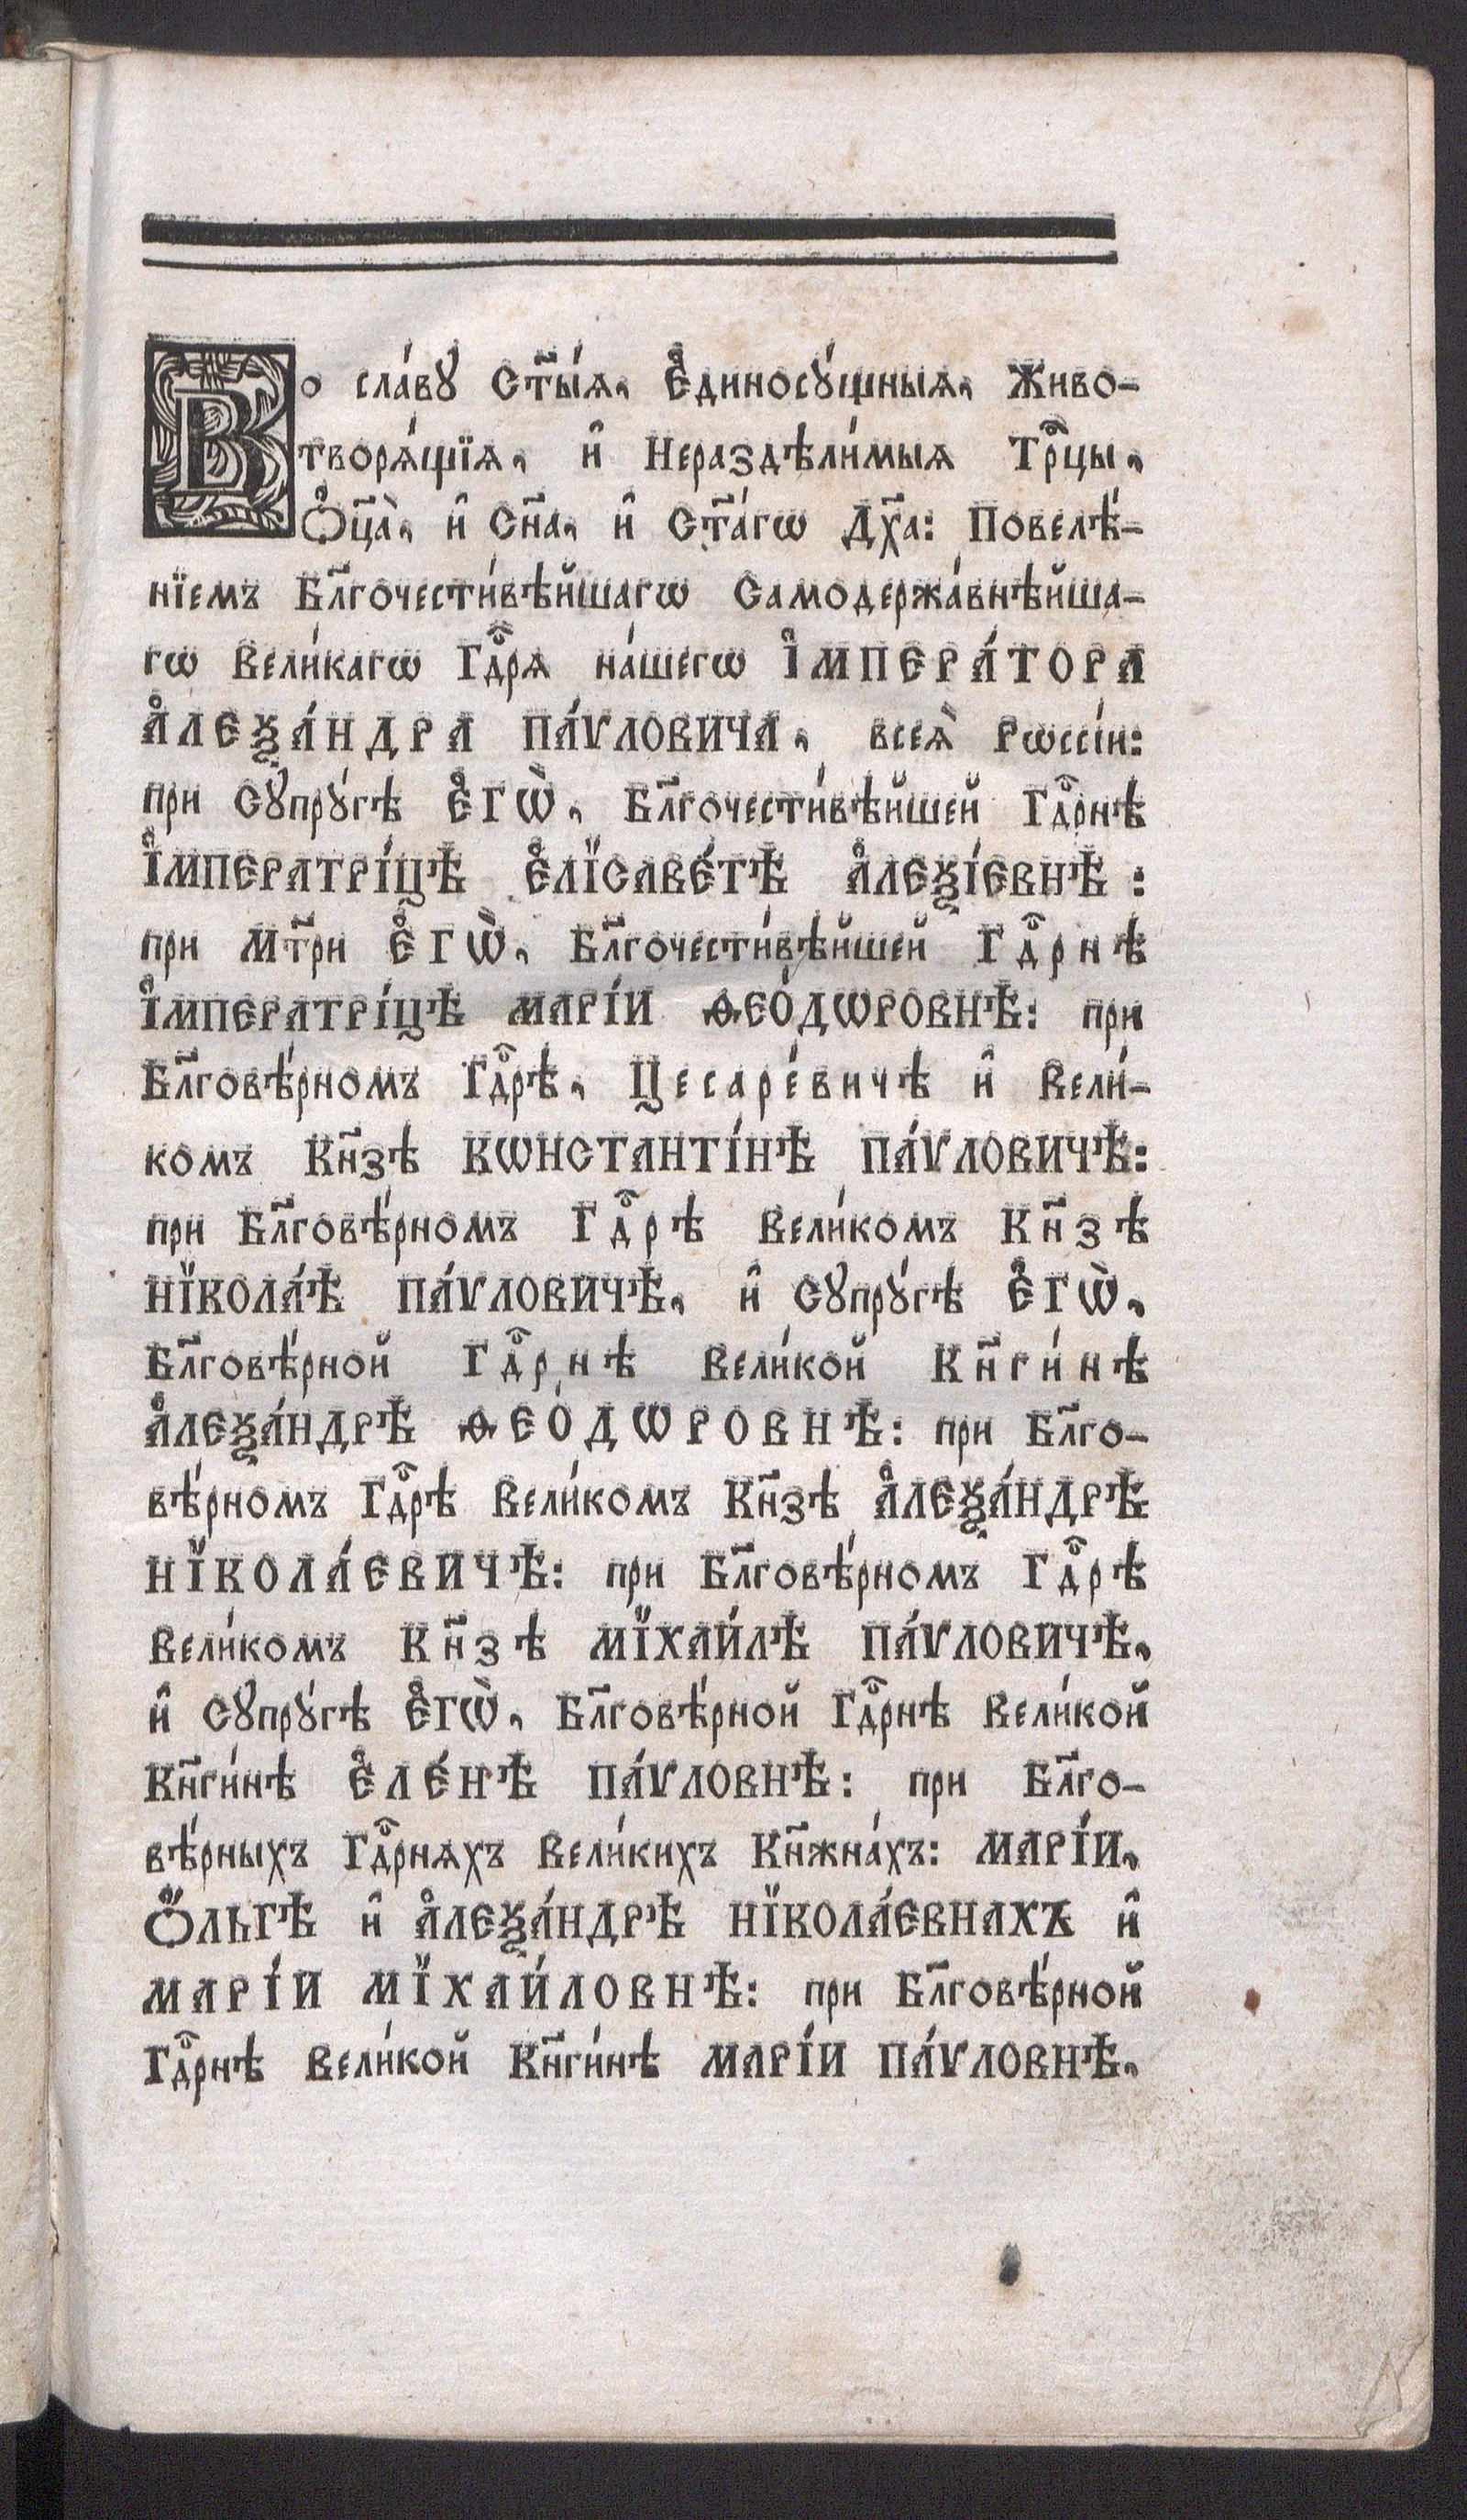 Во сла́вꙋ Ст҃ы́ѧ, Е҆диносꙋ́щныѧ, Живо-
творѧ́щїѧ, и҆ Нераздѣли́мыѧ Трⷪ҇цы,
Ѻ҆ц҃а̀, и҆ Сн҃а, и҆ Ст҃а́гѡ Дх҃а: Повелѣ́-
нїемъ Бл҃гочести́вѣйшагѡ Самодержа́внѣйша-
гѡ Вели́кагѡ Гдⷭ҇рѧ на́шегѡ І҆МПЕРА́ТОРА
А҆ЛЕѮА́НДРА ПА́ѴЛОВИЧА, всеѧ̀ Рѡссі́и:
при Сꙋпрꙋ́гѣ Е҆ГѠ̀, Бл҃гочести́вѣйшей Гдⷭ҇рнѣ
І҆МПЕРАТРІ́ЦѢ Е҆ЛЇСАВЕ́ТѢ А҆ЛЕѮІ́ЕВНѢ:
при Мт҃ри Е҆ГѠ̀, Бл҃гочести́вѣйшей Гдⷭ҇рнѣ
І҆МПЕРАТРІ́ЦѢ МАРІ́И ѲЕО́ДѠРОВНѢ: при
Бл҃говѣ́рномъ Гдⷭ҇рѣ, Цесаре́вичѣ и҆ Вели́-
комъ Кн҃зѣ КѠНСТАНТІ́НѢ ПА́ѴЛОВИЧѢ:
при Бл҃говѣ́рномъ Гдⷭ҇рѣ Вели́комъ Кн҃зѣ
НЇКОЛА́Ѣ ПА́ѴЛОВИЧѢ, и҆ Сꙋпрꙋ́гѣ Е҆ГѠ̀,
Бл҃говѣ́рной Гдⷭ҇рнѣ Вели́кой Кн҃ги́нѣ
А҆ЛЕѮА́НДРѢ ѲЕО́ДѠРОВНѢ: при Бл҃го-
вѣ́рномъ Гдⷭ҇рѣ Вели́комъ Кн҃зѣ А҆ЛЕѮА́НДРѢ
НЇКОЛА́ЕВИЧѢ: при Бл҃говѣ́рномъ Гдⷭ҇рѣ
Вели́комъ Кн҃зѣ МЇХАИ́ЛѢ ПА́ѴЛОВИЧѢ,
и҆ Сꙋпрꙋ́гѣ Е҆ГѠ̀, Бл҃говѣ́рной Гдⷭ҇рнѣ Вели́кой
Кн҃ги́нѣ Е҆ЛЕ́НѢ ПА́ѴЛОВНѢ: при Бл҃го-
вѣ́рныхъ Гдⷭ҇рнѧхъ Вели́кихъ Кн҃жна́хъ: МАРІ́И,
Ѻ҆́ЛЬГѢ и҆ А҆ЛЕѮА́НДРѢ НЇКОЛА́ЕВНАХЪ и҆
МАРІ́И МЇХАИ́ЛОВНѢ: при Бл҃говѣ́рной
Гдⷭ҇рнѣ Вели́кой Кн҃ги́нѣ МАРІ́И ПА́ѴЛОВНѢ,